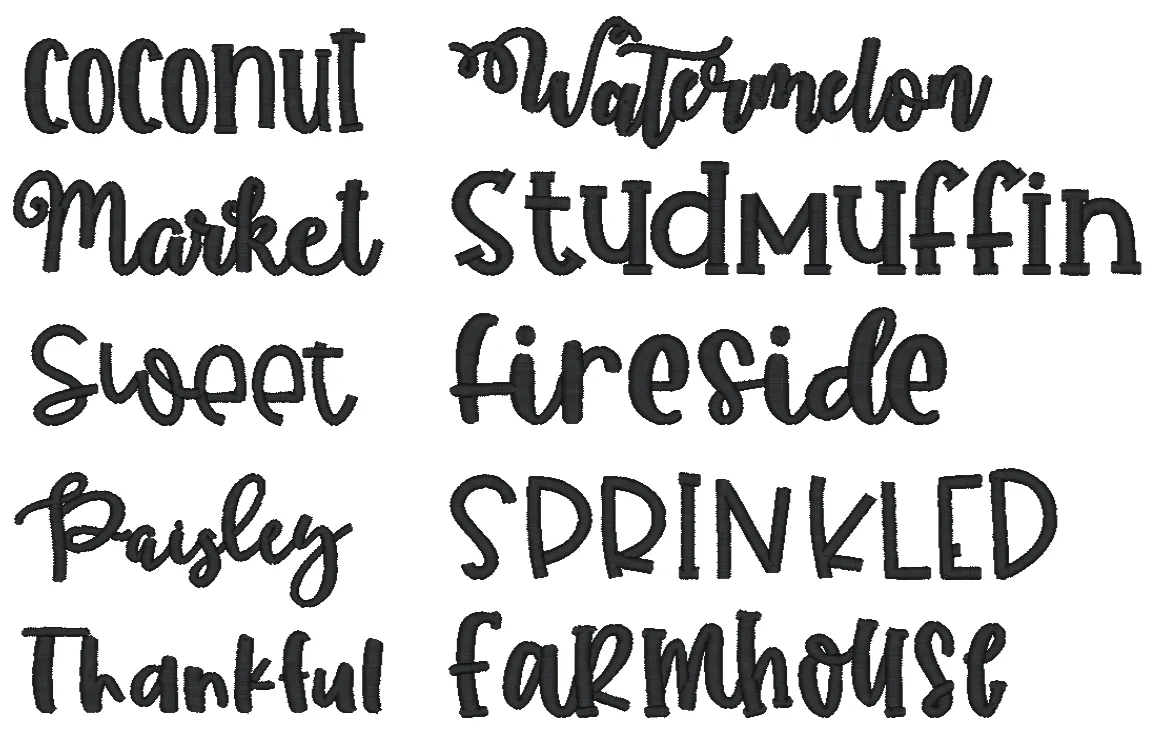 coconut
Watermelon
Market
Studmuffin
Sweet
fireside
Paisley
SPRINKLED
Thankful
faRmhouse